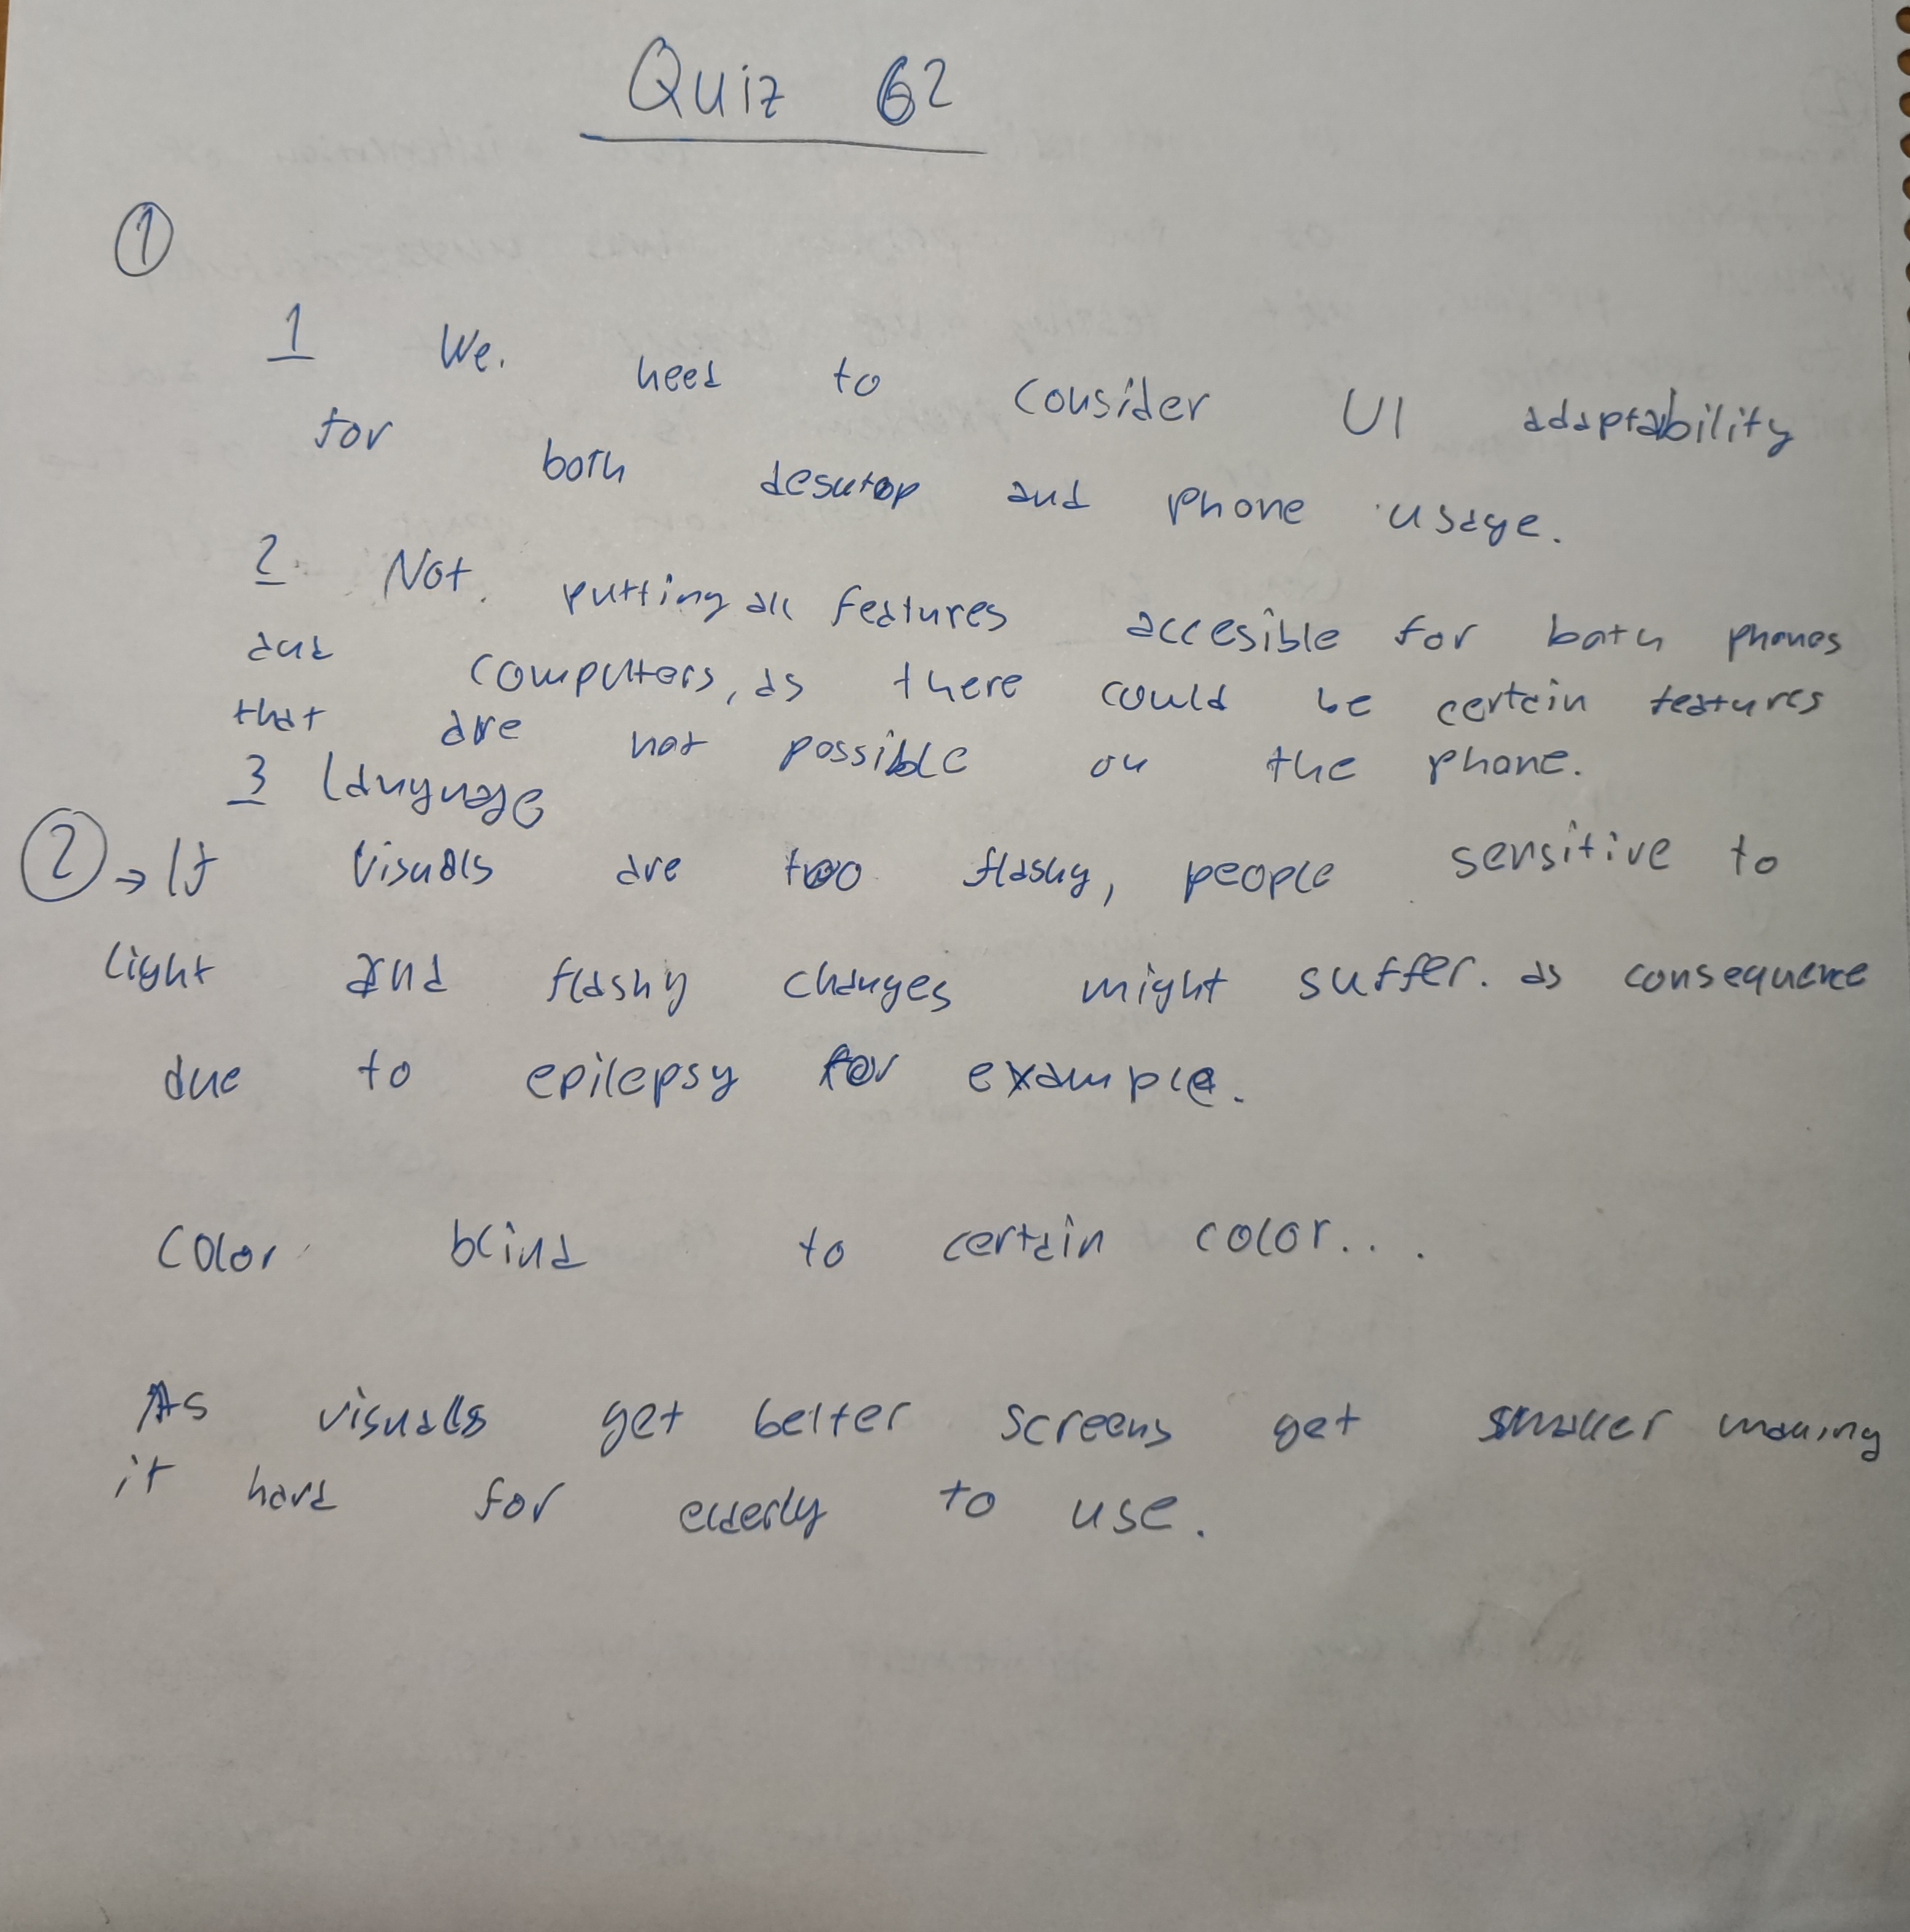 Quiz 62
①
1 We. need to consider UI adaptability
for both desktop and phone usage.
2 Not putting all features accesible for both phones
and computers, as there could be certain features
that are not possible on the phone.
3 language
② → If visuals are too flashy, people sensitive to
light and flashy changes might suffer. as consequence
due to epilepsy for example.
Color blind to certain color...
As visuals get better screens get smaller making
it hard for elderly to use.